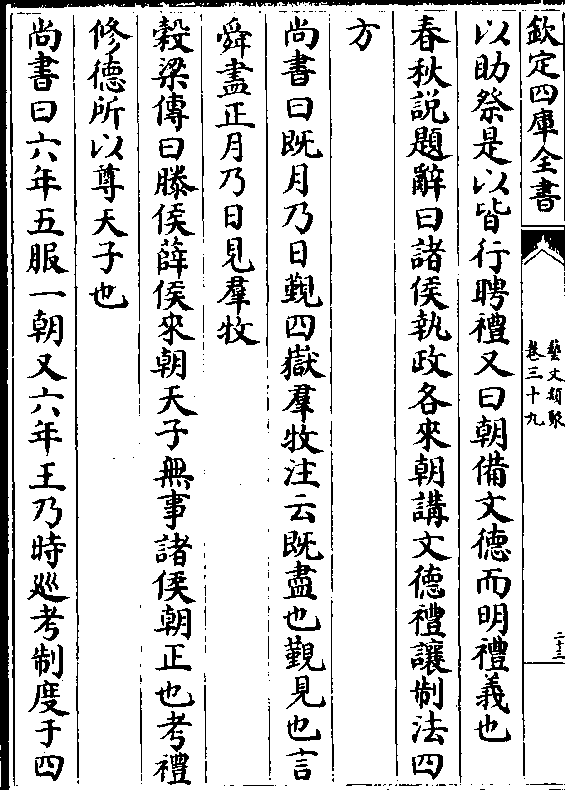 欽定四庫全書
藝文類聚
卷三十九
二十三
以助祭是以皆行聘禮又曰朝備文德而明禮義也
春秋説題辭曰諸侯執政各來朝講文德禮讓制法四
方
尚書曰既月乃日覲四嶽羣牧注云既盡也覲見也言
舜盡正月乃日見羣牧
穀梁傳曰滕侯薛侯來朝天子無事諸侯朝正也考禮
修德所以尊天子也
尚書曰六年五服一朝又六年王乃時巡考制度于四